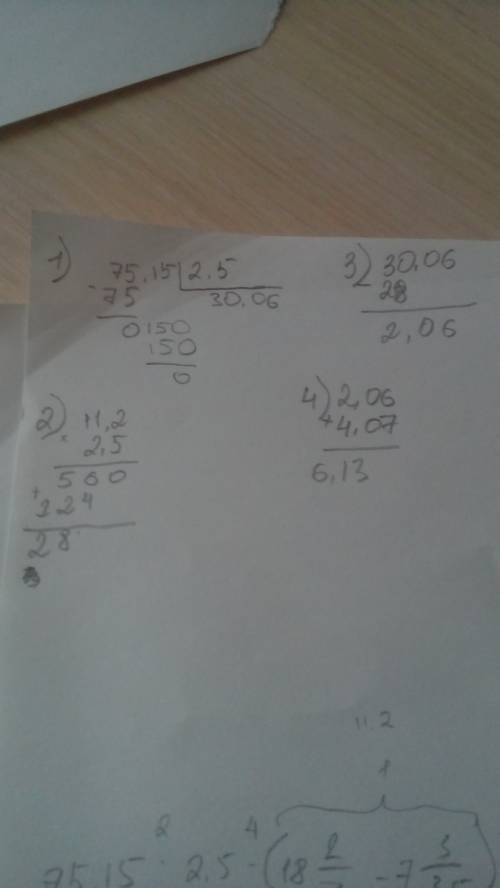 1) 75,15 | 2,5
- 75 30,06
0150
150
0
2) × 11,2
2,5
560
+ 224
28
3) 30,06
28
2,06
4) 2,06
+ 4,07
6,13
11.2
1
2 4
75,15 : 2,5 - (18 2 - 7 3